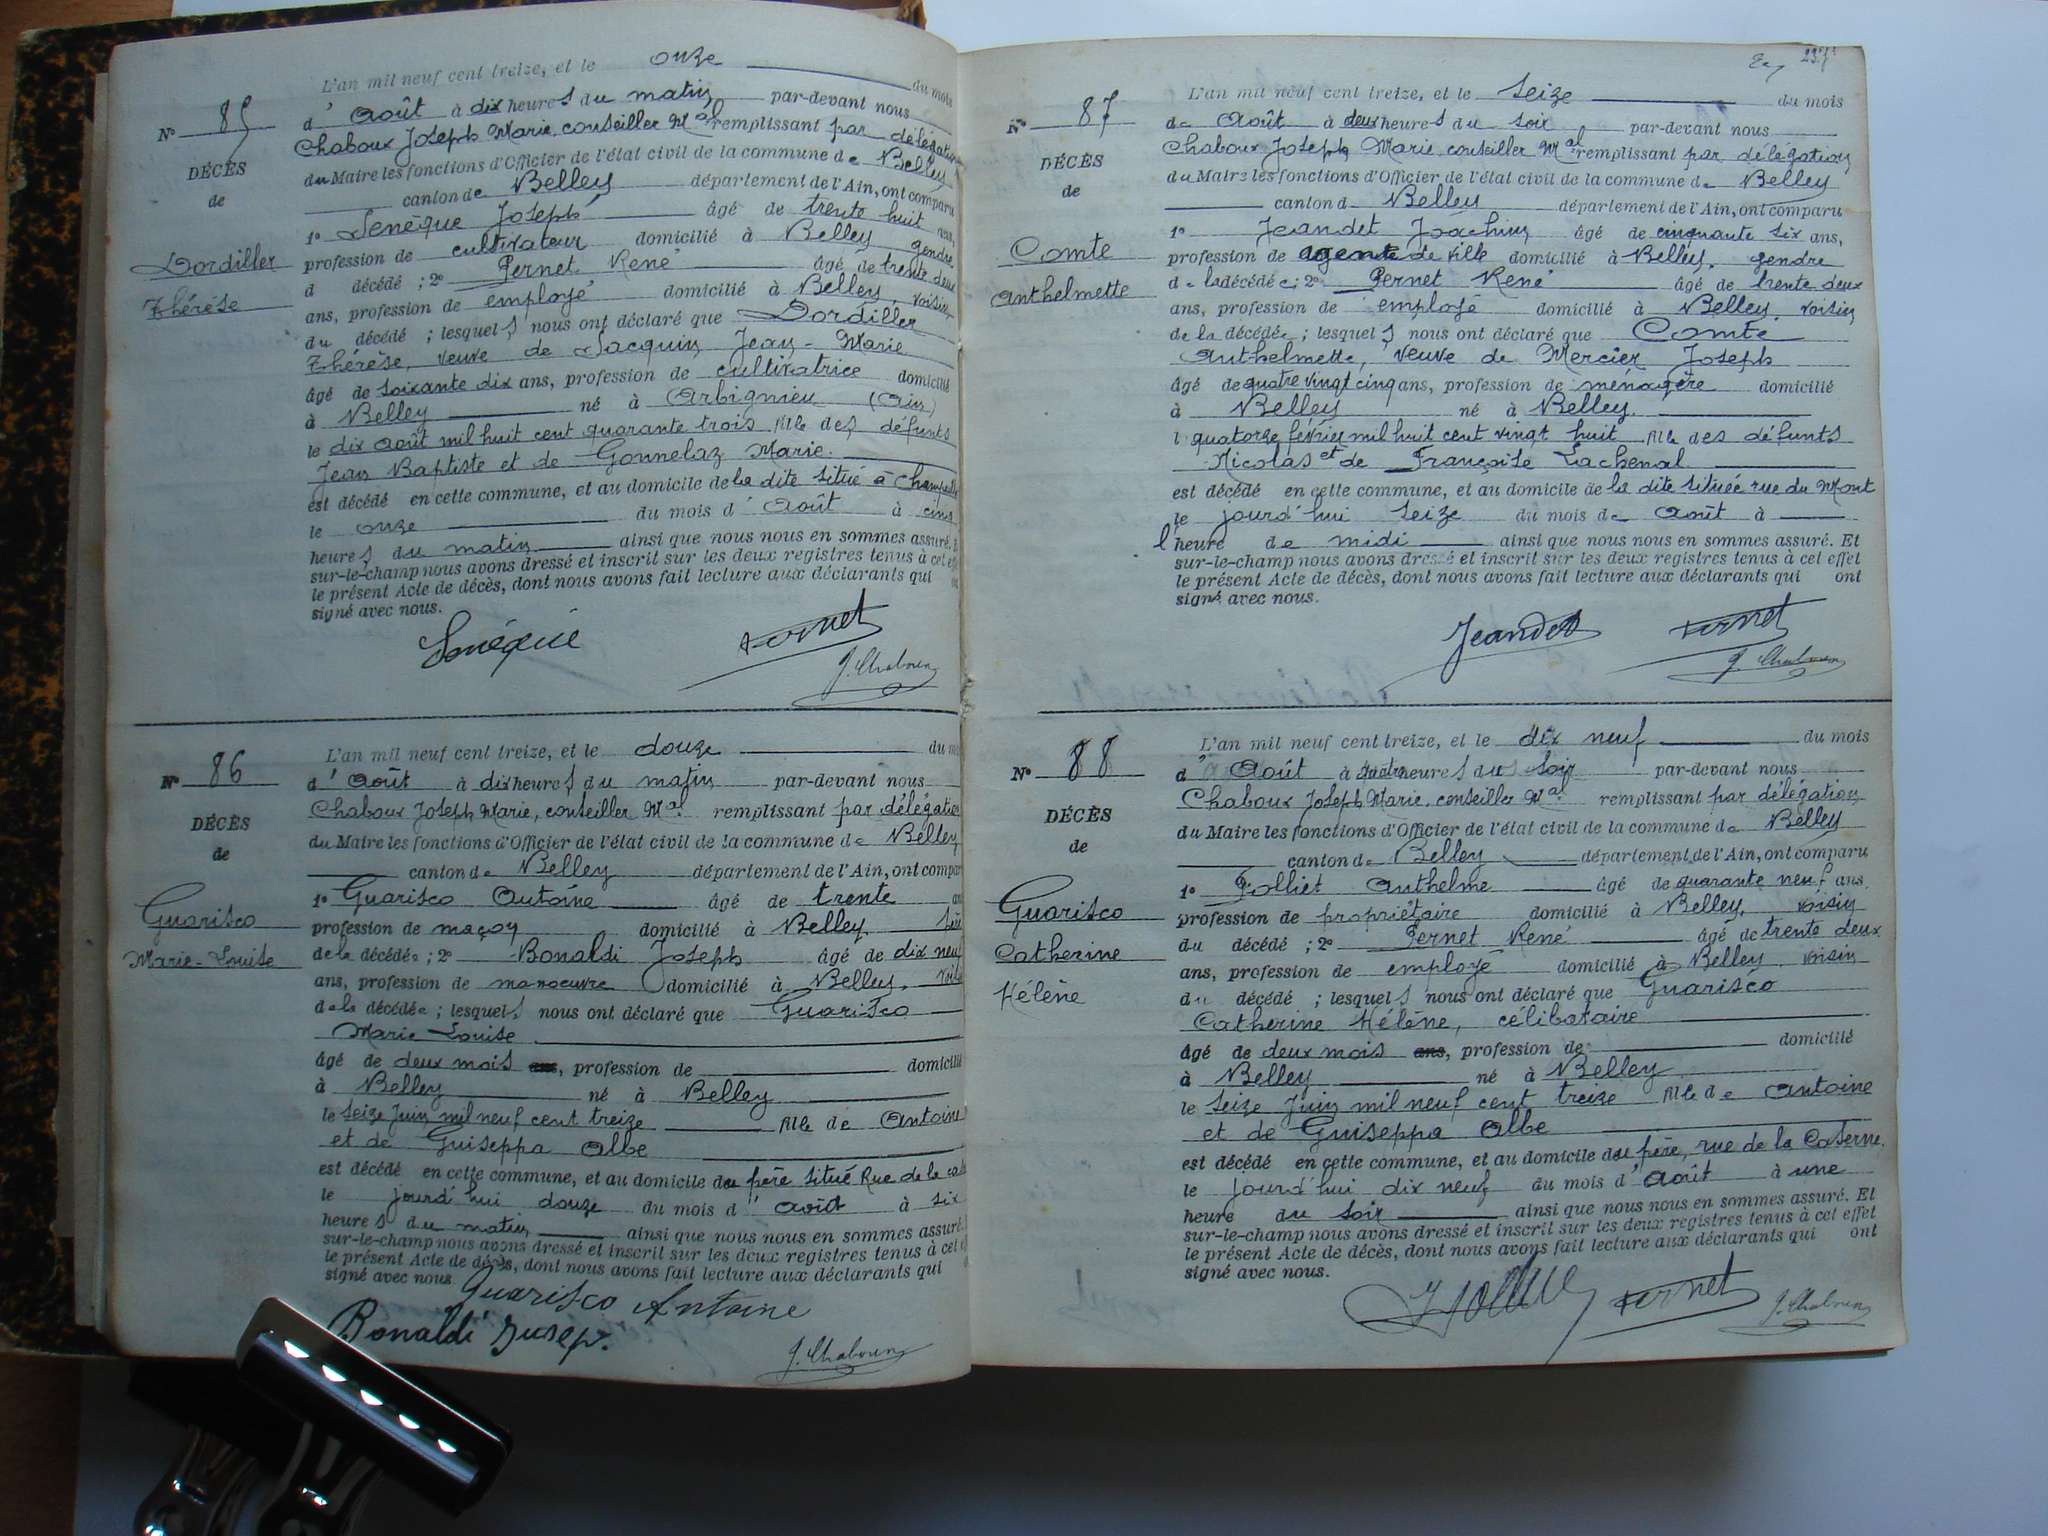 L'an mil neuf cent treize, et le onze du mois
N° 85
d'Août à dix heures du matin par-devant nous
Chaboux Joseph Marie, conseiller Mal remplissant par délégation
DÉCÈS
du Maire les fonctions d'Officier de l'état civil de la commune de Belley
de
canton de Belley département de l'Ain, ont comparu
1° Senèque Joseph âgé de trente huit ans,
Dordiller
Thérèse
profession de cultivateur domicilié à Belley gendre
d décédé ; 2° Pernet René âgé de trente deux
ans, profession de employé domicilié à Belley, voisin
du décédé ; lesquels nous ont déclaré que Dordiller
Thérèse, veuve de Jacquin Jean-Marie
âgé de soixante dix ans, profession de cultivatrice domicilié
à Belley né à Arbignieu (Ain)
le dix Août mil huit cent quarante trois fille des défunts
Jean Baptiste et de Gonnelaz Marie.
est décédé en cette commune, et au domicile de la dite situé à
le onze du mois d'Août à cinq
heures du matin ainsi que nous nous en sommes assuré. Et
sur-le-champ nous avons dressé et inscrit sur les deux registres tenus à cet effet
le présent Acte de décès, dont nous avons fait lecture aux déclarants qui ont
signé avec nous.
Senèque Pernet
J. Chaboux
L'an mil neuf cent treize, et le douze du mois
N° 86
d'Août à dix heures du matin par-devant nous
Chaboux Joseph Marie, conseiller Mal remplissant par délégation
DÉCÈS
du Maire les fonctions d'Officier de l'état civil de la commune de Belley
de
canton de Belley département de l'Ain, ont comparu
1° Guarisco Antoine âgé de trente ans
Guarisco
Marie-Louise
profession de maçon domicilié à Belley
de la décédée ; 2° Bonaldi Joseph âgé de dix neuf
ans, profession de manoeuvre domicilié à Belley, voisin
de la décédée ; lesquels nous ont déclaré que Guarisco
Marie Louise
âgé de deux mois ans, profession de domicilié
à Belley né à Belley
le seize Juin mil neuf cent treize fille de Antoine
et de Guiseppa Albe
est décédé en cette commune, et au domicile du père situé Rue de la
le jourd'hui douze du mois d'août à six
heures du matin ainsi que nous nous en sommes assuré.
sur-le-champ nous avons dressé et inscrit sur les deux registres tenus à cet
le présent Acte de décès, dont nous avons fait lecture aux déclarants qui
signé avec nous.
Guarisco Antoine
Bonaldi Jusep.
J. Chaboux
237
L'an mil neuf cent treize, et le Seize du mois
N° 87
de Août à deux heures du soir par-devant nous
Chaboux Joseph Marie, conseiller Mal remplissant par délégation
DÉCÈS
du Maire les fonctions d'Officier de l'état civil de la commune de Belley
de
canton de Belley département de l'Ain, ont comparu
1° Jeandet Joachim âgé de cinquante six ans,
Comte
Anthelmette
profession de agent de ville domicilié à Belley, gendre
de la décédée ; 2° Pernet René âgé de trente deux
ans, profession de employé domicilié à Belley, voisin
de la décédée ; lesquels nous ont déclaré que Comte
Anthelmette, veuve de Mercier Joseph
âgé de quatre vingt cinq ans, profession de ménagère domicilié
à Belley né à Belley.
l quatorze février mil huit cent vingt huit fille des défunts
Nicolas et de Françoise Lachenal
est décédé en cette commune, et au domicile de la dite située rue du Mont
le jourd'hui seize du mois de Août à
l'heure de midi ainsi que nous nous en sommes assuré. Et
sur-le-champ nous avons dressé et inscrit sur les deux registres tenus à cet effet
le présent Acte de décès, dont nous avons fait lecture aux déclarants qui ont
signé avec nous.
Jeandet Pernet
J. Chaboux
L'an mil neuf cent treize, et le dix neuf du mois
N° 88
d'Août à quatre heures du soir par-devant nous
Chaboux Joseph Marie, conseiller Mal remplissant par délégation
DÉCÈS
du Maire les fonctions d'Officier de l'état civil de la commune de Belley
de
canton de Belley département de l'Ain, ont comparu
1° Folliet Anthelme âgé de quarante neuf ans,
Guarisco
Catherine
Hélène
profession de propriétaire domicilié à Belley, voisin
du décédé ; 2° Pernet René âgé de trente deux
ans, profession de employé domicilié à Belley, voisin
du décédé ; lesquels nous ont déclaré que Guarisco
Catherine Hélène, célibataire
âgé de deux mois ans, profession de domicilié
à Belley né à Belley
le seize Juin mil neuf cent treize fille de Antoine
et de Guiseppa Albe
est décédé en cette commune, et au domicile du père, rue de la Caserne.
le jourd'hui dix neuf du mois d'Août à une
heure du soir ainsi que nous nous en sommes assuré. Et
sur-le-champ nous avons dressé et inscrit sur les deux registres tenus à cet effet
le présent Acte de décès, dont nous avons fait lecture aux déclarants qui ont
signé avec nous.
Pernet J. Chaboux